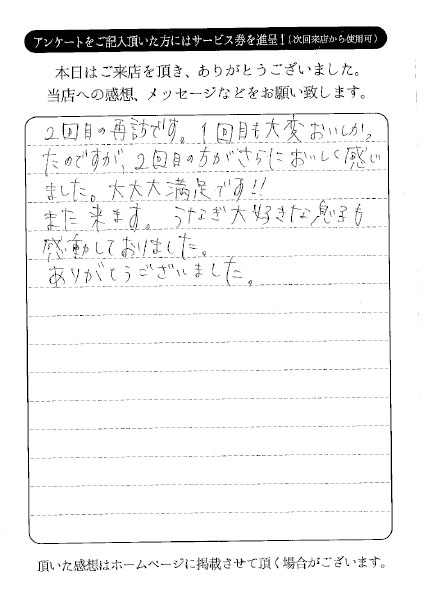 アンケートをご記入頂いた方にはサービス券を進呈！（次回来店から使用可）
本日はご来店を頂き、ありがとうございました。
当店への感想、メッセージなどをお願い致します。
2回目の再訪です。1回目も大変おいしかっ
たのですが、2回目の方がさらにおいしく感じ
ました。大大大満足です!!
また来ます。うなぎ大好きな息子も
感動しておりました。
ありがとうございました。
頂いた感想はホームページに掲載させて頂く場合がございます。